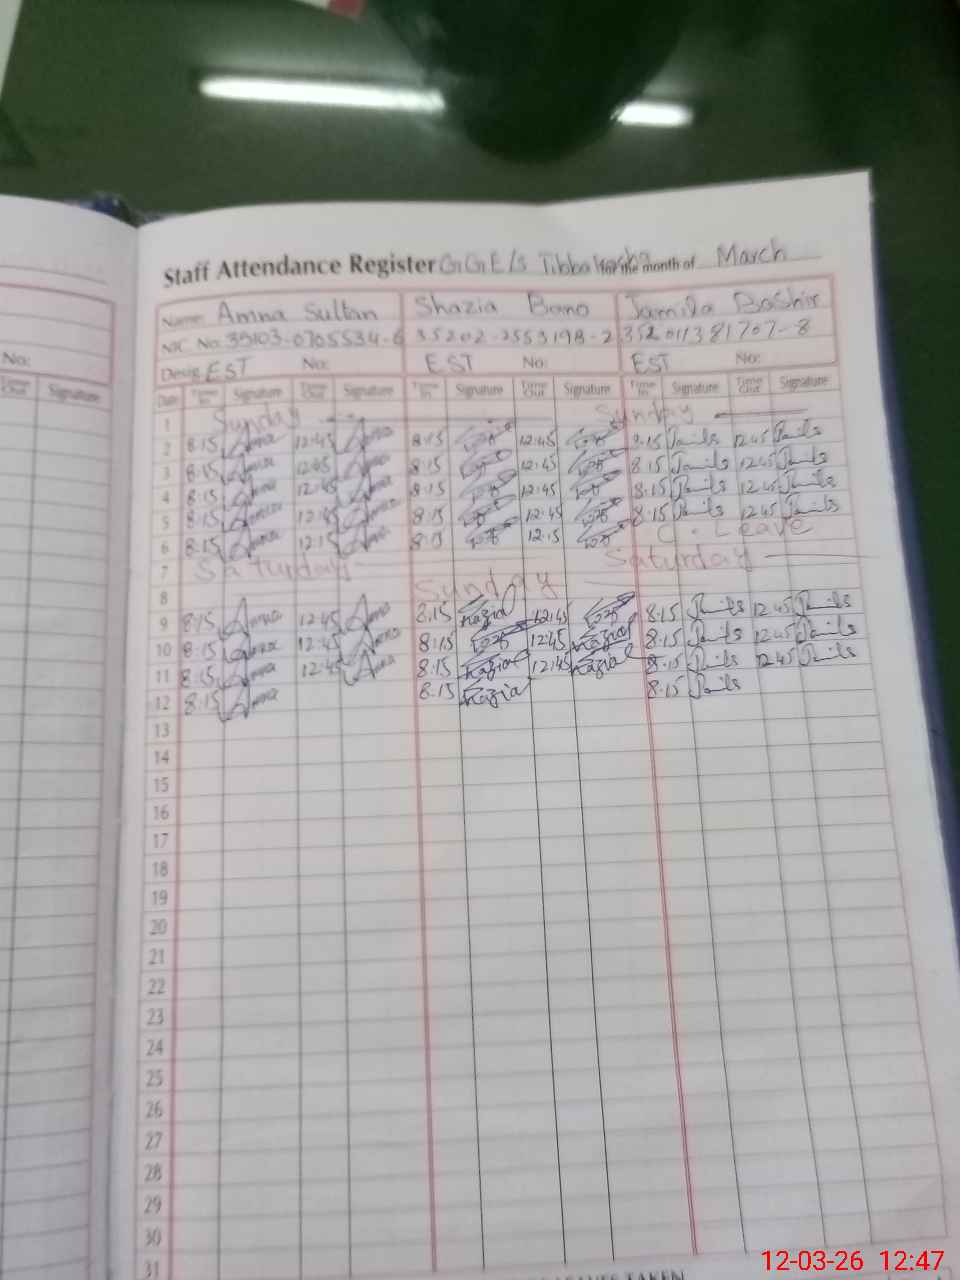 Staff Attendance Register GGE/S Tibba for the month of March
Name: Amna Sultan Shazia Bano Jamila Bashir
NIC No: 35103-0705534-6 35202-2553198-2 352011381707-8
No:
Desig: EST No: EST No: EST No:
Out Signature
Date Time In Signature Time Out Signature Time In Signature Time Out Signature Time In Signature Time Out Signature
1 Sunday Sunday
2 8:15 Amna 12:45 Amna 8:15 12:45 8:15 Jamila 12:45 Jamila
3 8:15 Amna 12:45 Amna 8:15 12:45 8:15 Jamila 12:45 Jamila
4 8:15 Amna 12:45 Amna 8:15 12:45 8:15 Jamila 12:45 Jamila
5 8:15 Amna 12:45 Amna 8:15 12:45 8:15 Jamila 12:45 Jamila
6 8:15 Amna 12:15 Amna 8:15 12:15 C. Leave
7 Saturday Saturday
8 Sunday
9 8:15 Amna 12:45 Amna 8:15 Shazia 12:45 8:15 Jamila 12:45 Jamila
10 8:15 Amna 12:45 Amna 8:15 12:45 Shazia 8:15 Jamila 12:45 Jamila
11 8:15 Amna 12:45 Amna 8:15 Shazia 12:45 Shazia 8:15 Jamila 12:45 Jamila
12 8:15 Amna 8:15 Shazia 8:15 Jamila
13
14
15
16
17
18
19
20
21
22
23
24
25
26
27
28
29
30
31
12-03-26 12:47